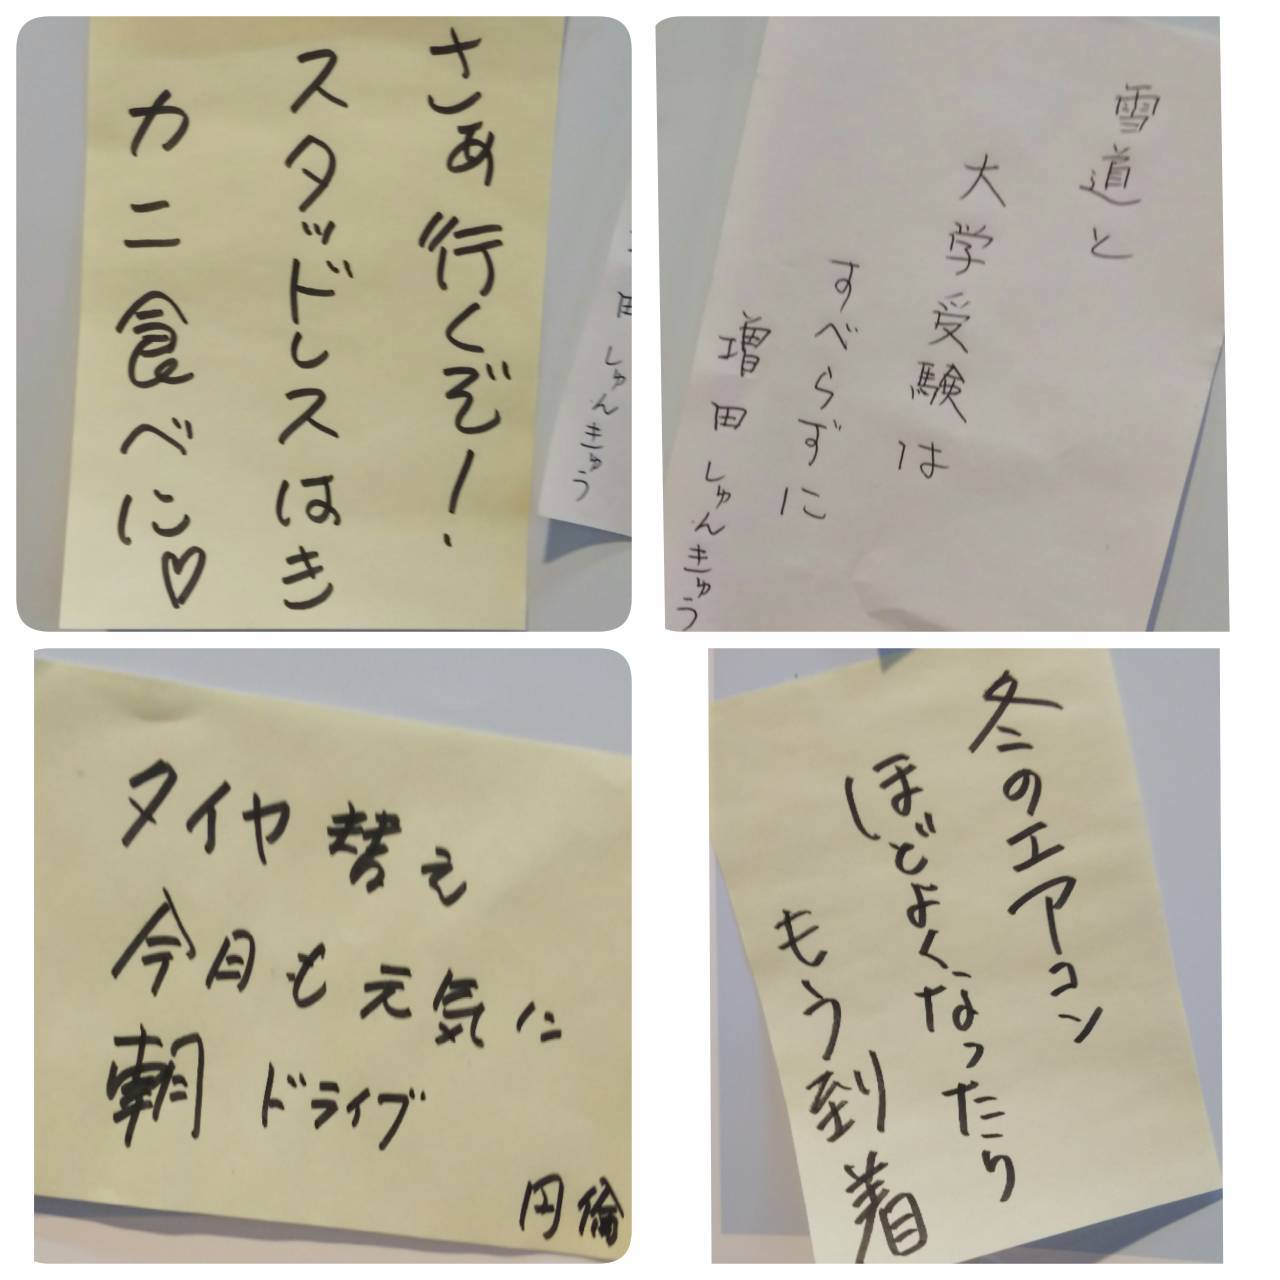 さあ行くぞ!
スタッドレスはき
カニ食べに♡
田しゅんきゅう
雪道と
大学受験は
すべらずに
増田しゅんきゅう
タイヤ替え
今日も元気に
朝ドライブ
円倫
冬のエアコン
ほどよくなったり
もう到着